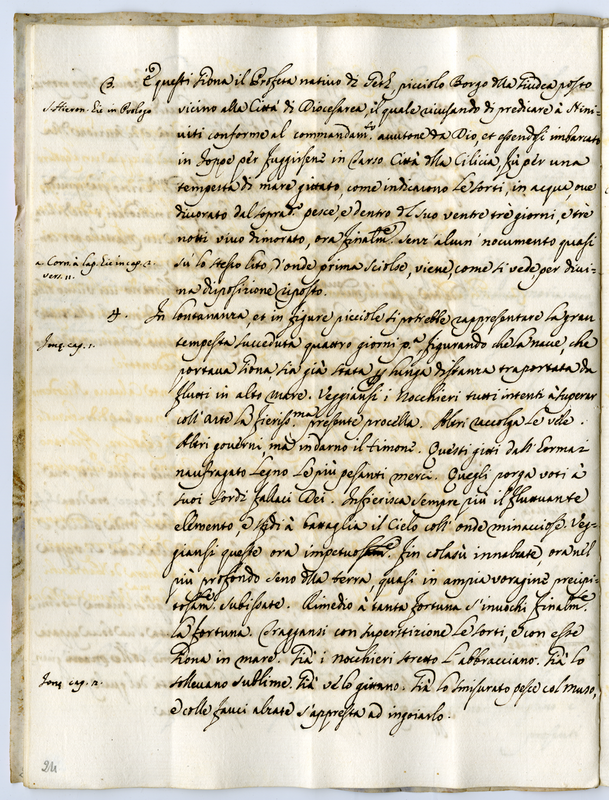 3. È questi Giona il Profeta nativo di Geth, picciolo Borgo della Giudea posto
S. Hieron. in Prologo
vicino alla Città di Diocesarea, il quale ricusando di predicare à Nini-
viti conforme al commandam.to avutone da Dio, et essendosi imbarcato
in Joppe per fuggirsene in Tarso Città della Cilicia, fù per una
tempesta di mare gittato, come indicarono le sorti, in acqua, ove
divorato dal sopra.to pesce, e dentro del suo ventre trè giorni, e trè
notti vivo dimorato, ora finalm.te senz' alcun' nocumento quasi
a Corn. à lap. in cap. 2.
vers. 11.
sù lo stesso lito, d'onde prima sciolse, viene, come si vede per divi-
na disposizione riposto.
4. In lontananza et in figure picciole si potrebbe rappresentare la gran
Jonę. cap. 1.
tempesta succeduta quattro giorni p.a figurando che la nave, che
portava Giona, sia già stata per lunga distanza traportata da
flutti in alto mare. Veggiansi i Nocchieri tutti intenti à superar
coll' arte la fierissi.ma presente procella. Altri raccolga le vele.
Altri governi, mà indarno il timone. Questi gitti dall' hormai
naufragato Legno le più pesanti merci. Quegli porga voti à
suoi sordi fallaci Dei. Infierisca sempre più il fluttuante
elemento, e sfidi à battaglia il Cielo coll' onde minacciose. Veg-
giansi queste ora impetuose fin colasù innalzate, ora nel
più profondo seno della terra quasi in ampia voragine precipi-
tosam.te subissate. Rimedio à tanta fortuna s'invochi finalm.te
la fortuna. Traggansi con superstizione le sorti, e con esse
Giona in mare. Già i nocchieri stretto l'abbracciano. Già lo
Jonę cap. 2.
sollevano sublime. Già ve lo gittano. Già lo smisurato pesce col muso,
e colle fauci alzate s'appresta ad ingoiarlo.
24